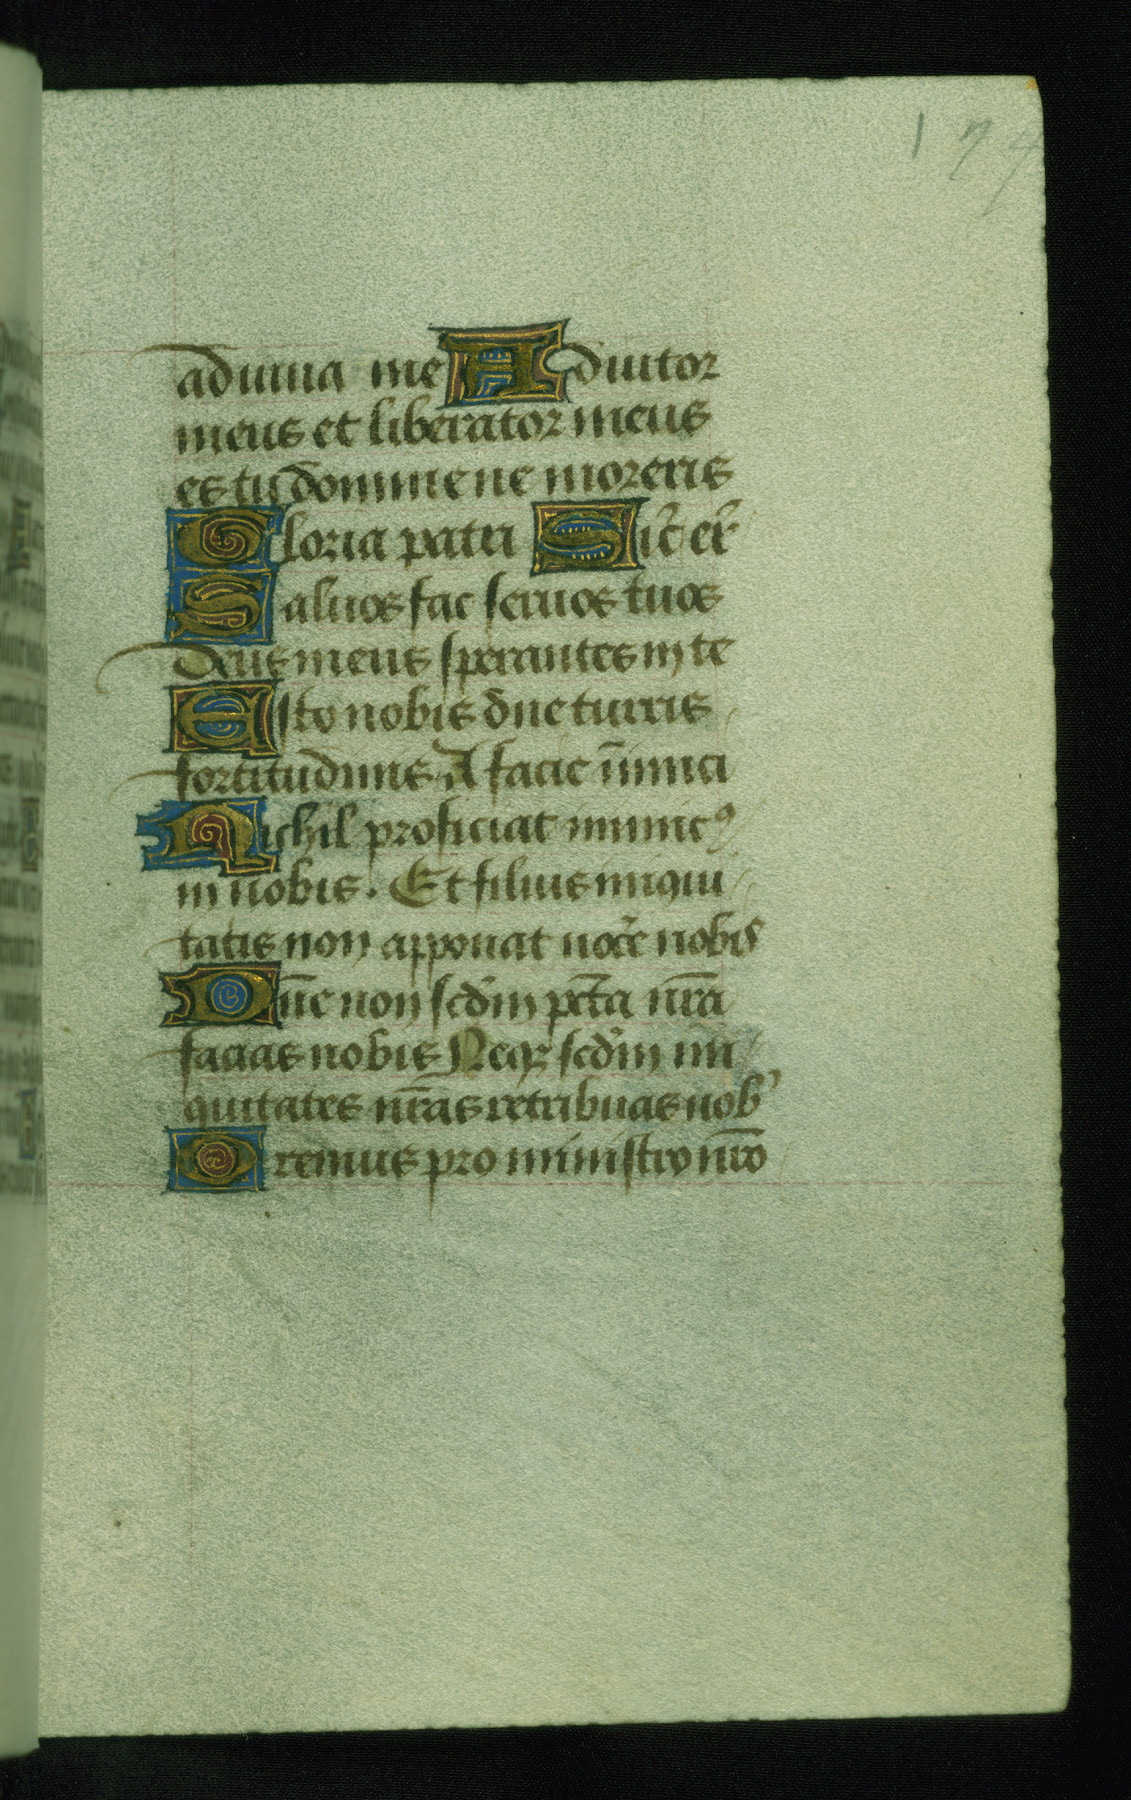 174
adiuua me Adiutor
meus et liberator meus
es tu domine ne moreris
Gloria patri Sic̃ er̃
Saluos fac seruos tuos
deus meus sperantes in te
Esto nobis dñe turris
fortitudinis A facie inimici
Nichil proficiat inimicꝰ
in nobis. Et filius iniqui
tatis non apponat noc̃e nobis
Dñe non scd̃m pc̃ta nr̃a
facias nobis Neqꝫ scd̃m ini
quitates nr̃as retribuas nob̾
Oremus pro ministro nr̃o